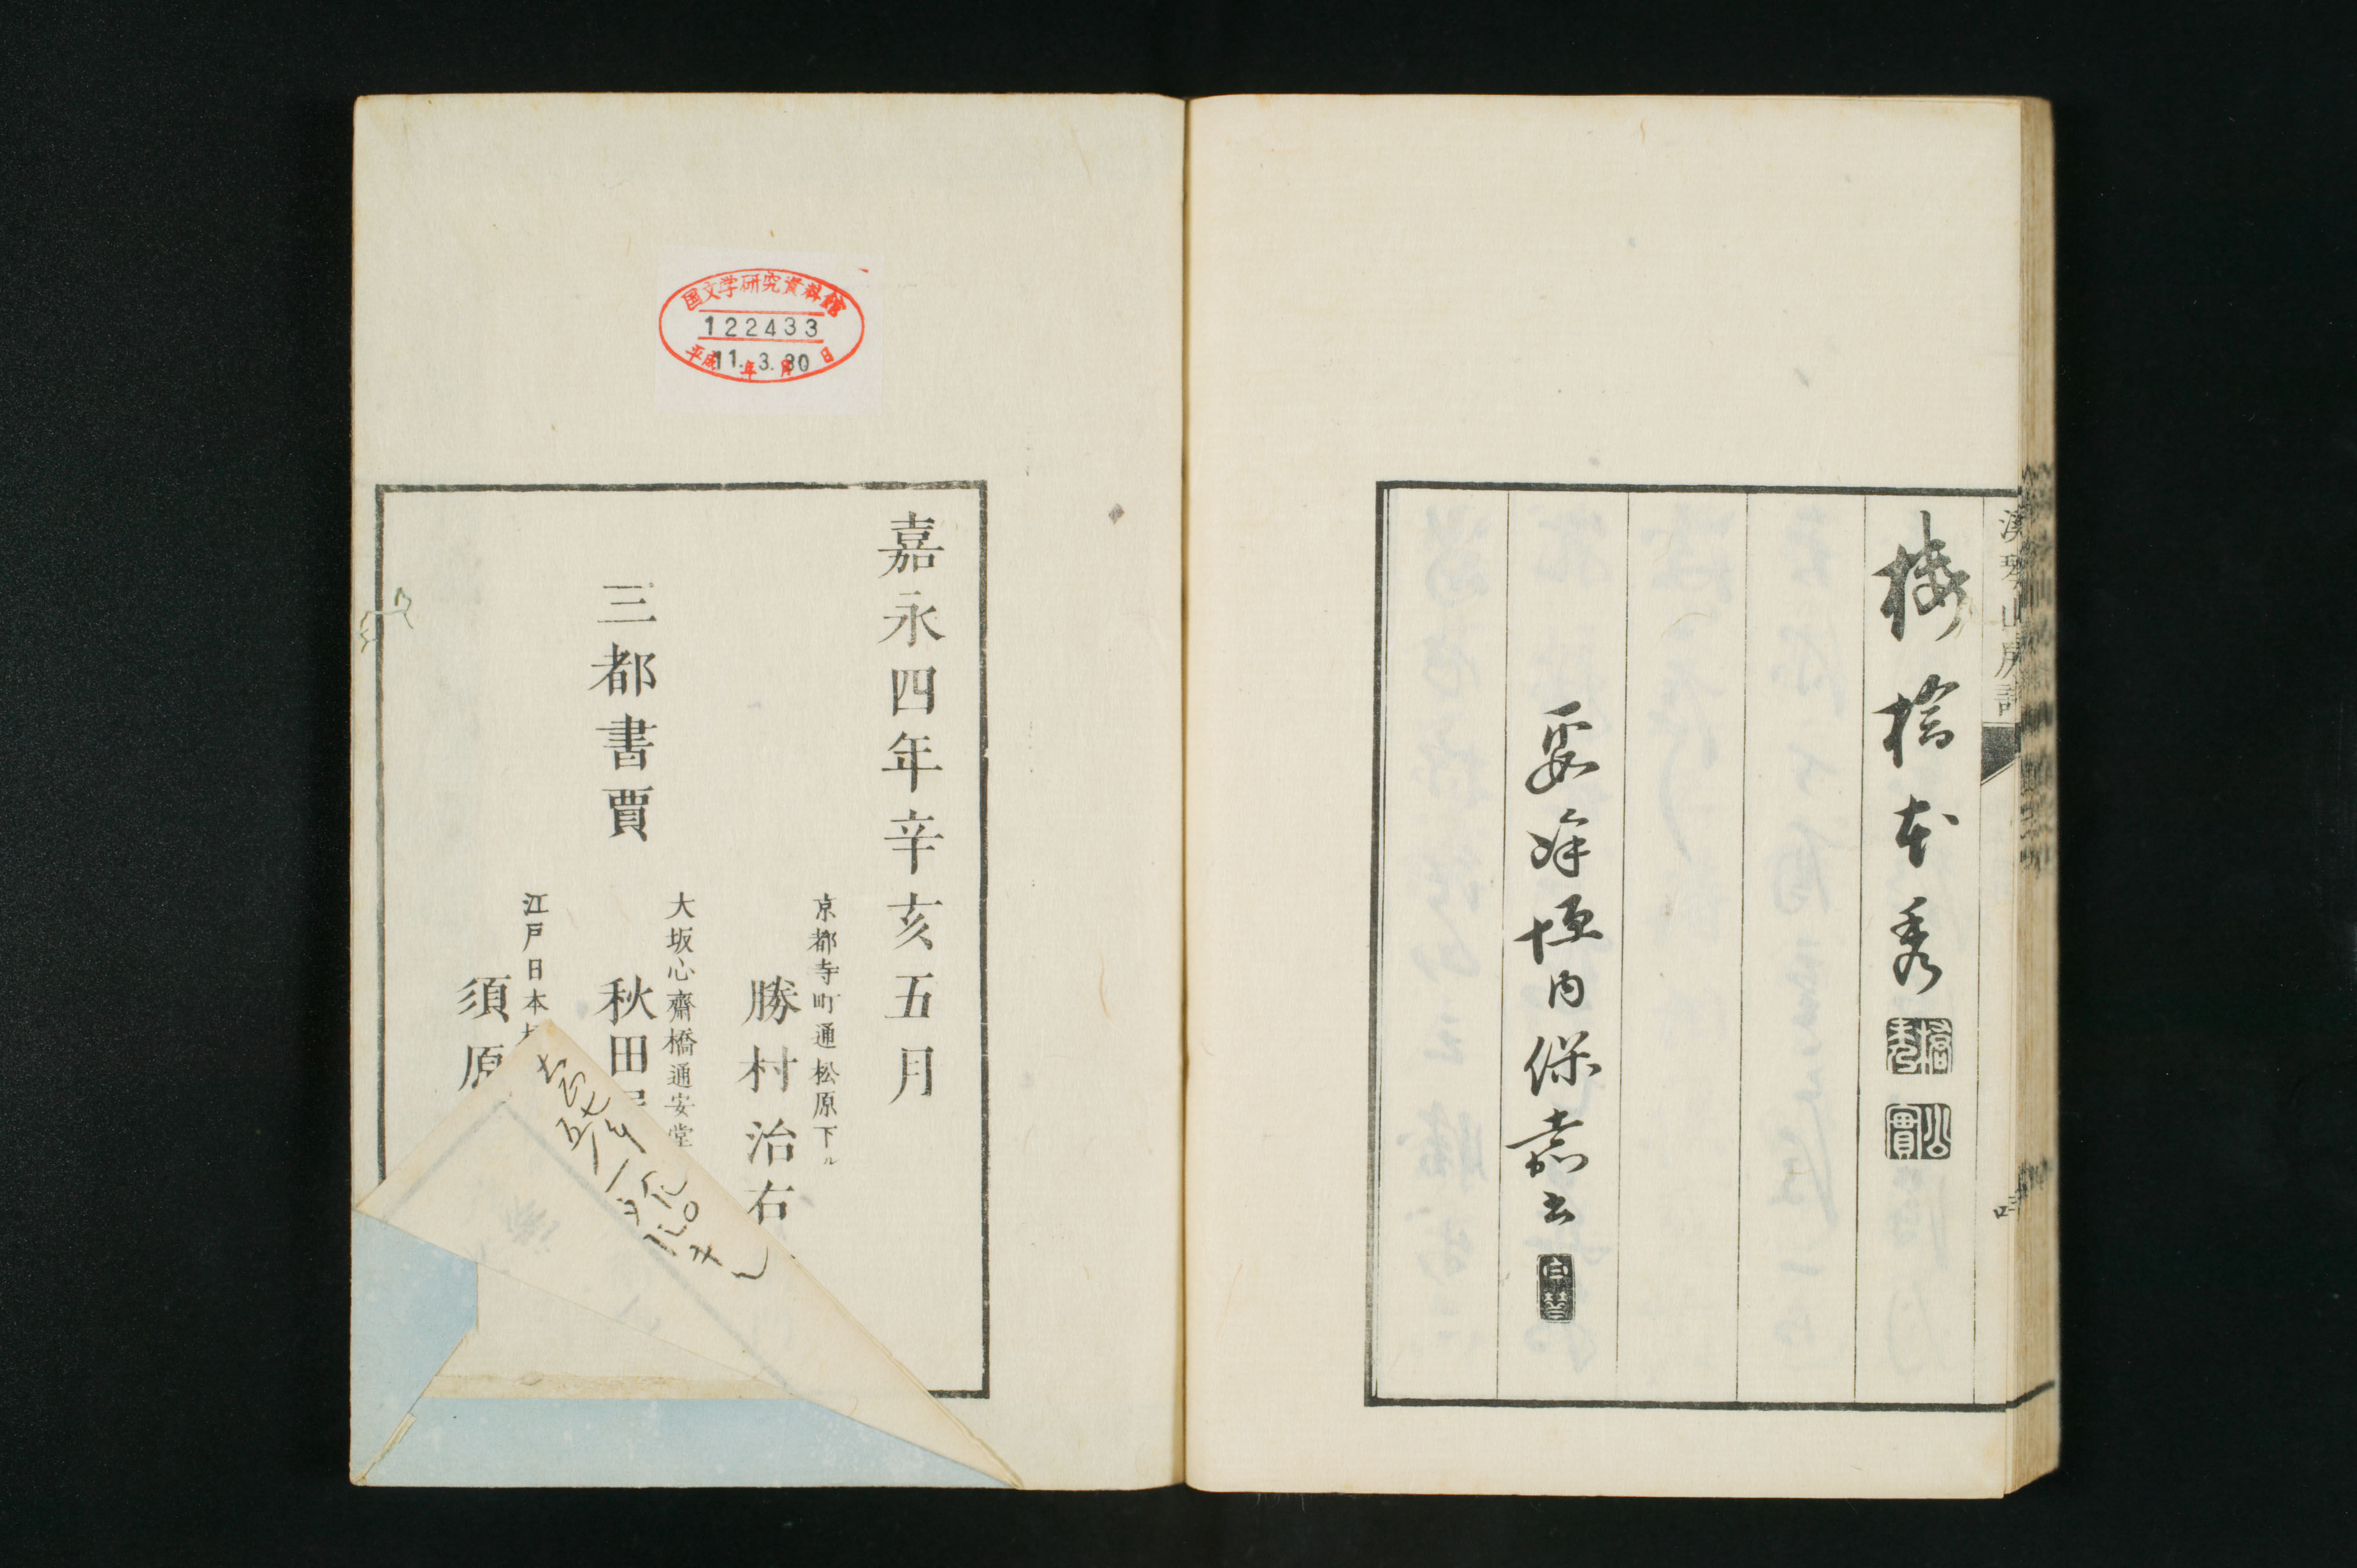 溪琴山房詩
梅檜本秀
橋秀
公實
垣内保嘉書
嘉永四年辛亥五月
京都寺町通松原下ル
勝村治右
大坂心齋橋通安堂
三都書賈
秋田屋
江戸日本
須原
国文学研究資料館
122433
平成11年3月30日